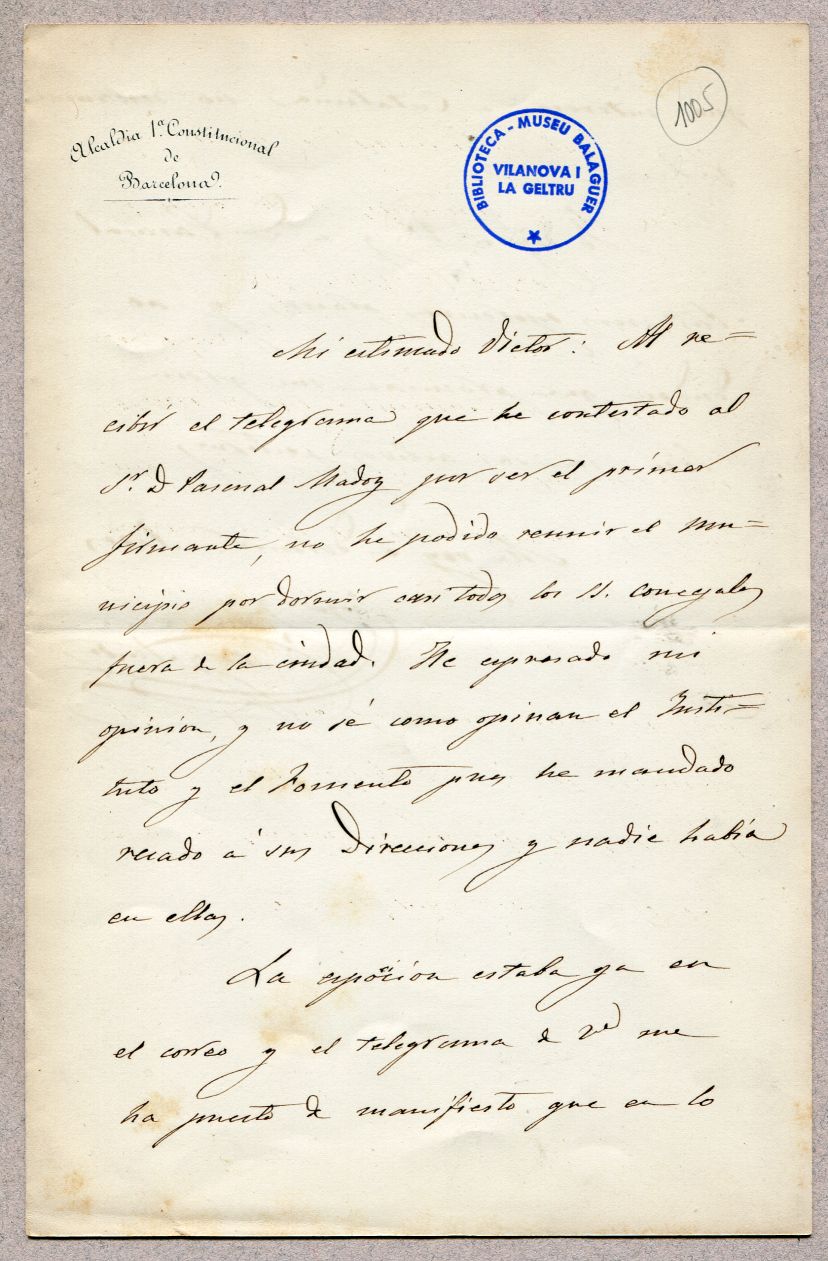 Alcaldia 1ª Constitucional
de
Barcelona.
BIBLIOTECA - MUSEU BALAGUER
VILANOVA I
LA GELTRU
1005
Mi estimado Victor: Al re=
cibir el telegrama que he contestado al
Sr. D Pascual Madoz por ser el primer
firmante, no he podido reunir el mu=
nicipio por dormir casi todos los SS. concejales
fuera de la ciudad. He espresado mi
opinion, y no sé como opinan el Insti=
tuto y el Fomento pues he mandado
recado á sus Direcciones y nadie había
en ellas.
La esposicion estaba ya en
el correo y el telegrama de Vd me
ha puesto de manifiesto que en lo